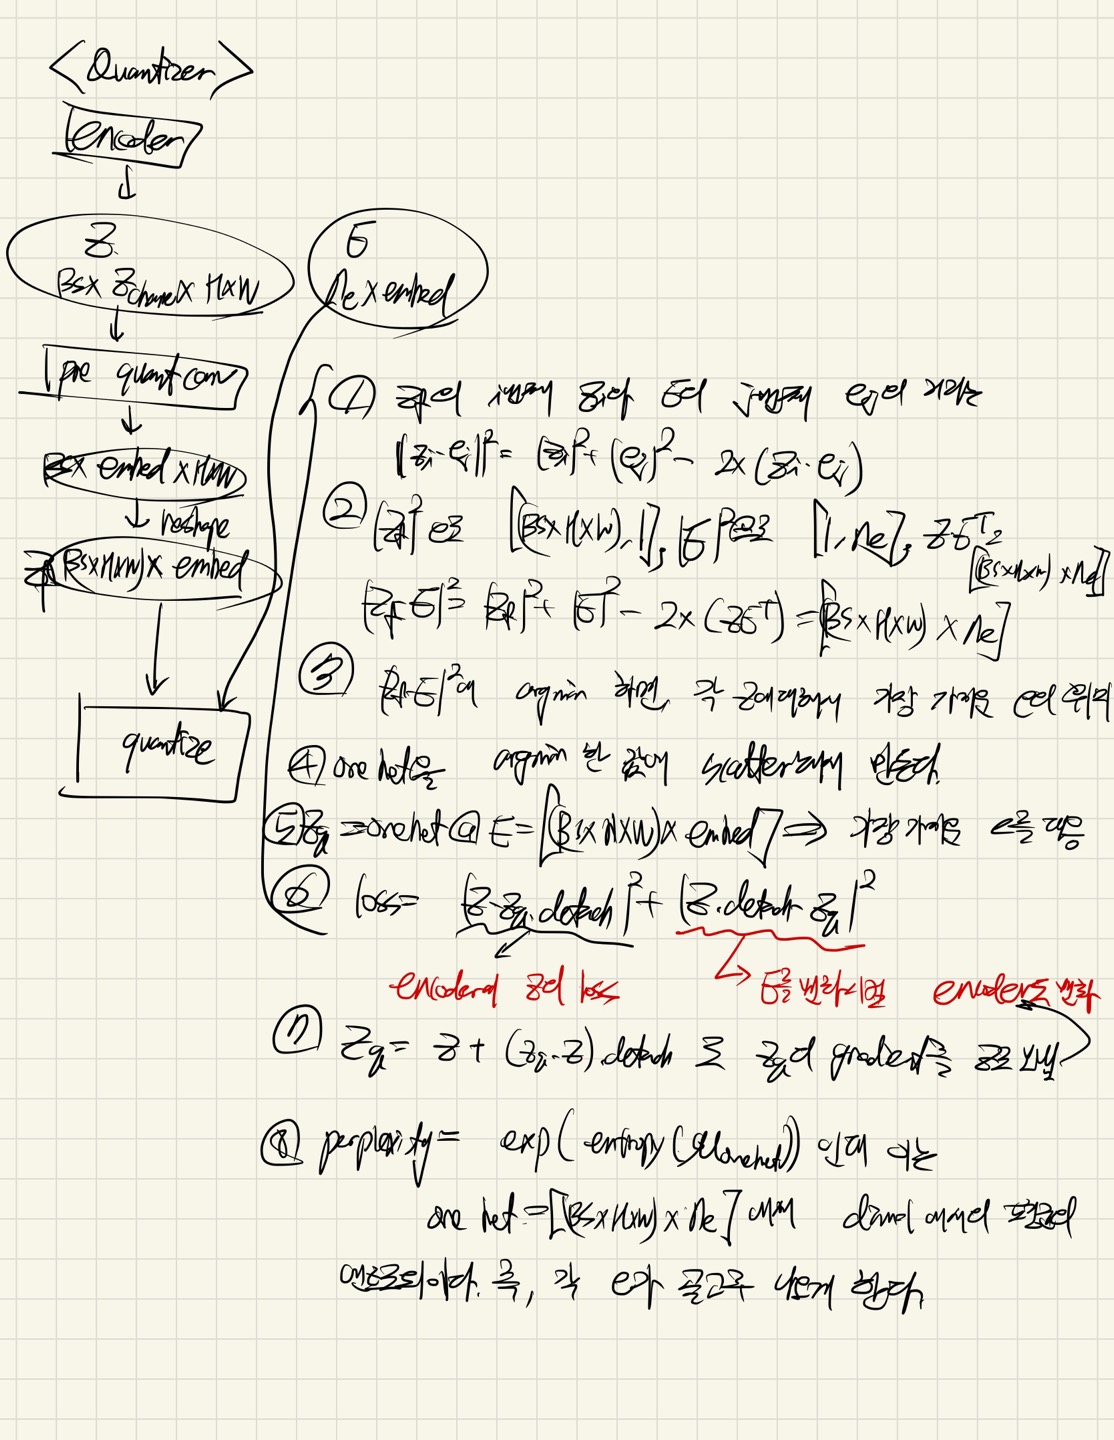 <Quantizer>
encoder
Z
BS x Z channel x H x W
E
ne x embed
pre quant conv
BS x embed x H x W
reshape
Zf (BS x H x W) x embed
quantize
① Zf의 i번째 zi와 E의 j번째 ej의 거리는
|zi - ej|² = |zi|² + |ej|² - 2 x (zi · ej)
② |Zf|² [(BS x H x W), 1], |E|² [1, ne], ZEᵀ
[(BS x H x W) x ne]
|Zf - E|² = |Zf|² + |E|² - 2 x (ZEᵀ) = [(BS x H x W) x ne]
③ |Zf - E|²에 argmin 하면, 각 z에 대해서 가장 가까운 e의 위치
④ one hot을 argmin 한 값에 scatter해서 만든다.
⑤ Zq = onehot @ E = [(BS x H x W) x embed] ⇒ 가장 가까운 e를 대응
⑥ loss = |Z - Zq.detach|² + |Z.detach - Zq|²
encoder의 z의 loss
E를 변화시킴 encoder도 변화
⑦ Zq = Z + (Zq - Z).detach 로 Zq의 gradient를 Z로 보냄
⑧ perplexity = exp(entropy( onehot)) 인데 이는
one hot = [(BS x H x W) x ne] 에서 에서의 평균의
엔트로피이다. 즉, 각 e가 골고루 나오게 한다.